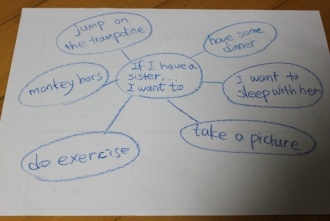 jump on
the trampoline
have some
dinner
If I have a
sister...
I want to
monkey bars
I want to
sleep with her
do exercise
take a picture